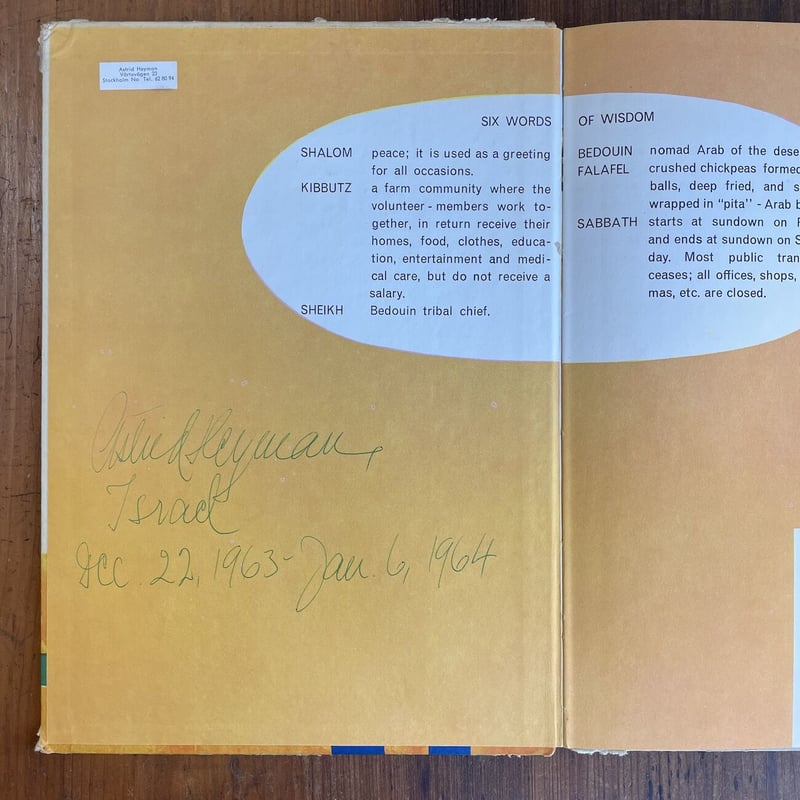 Astrid Heyman
Värtavägen 23
Stockholm No Tel. 62 80 94
SIX WORDS OF WISDOM
SHALOM peace; it is used as a greeting
for all occasions.
KIBBUTZ a farm community where the
volunteer - members work to-
gether, in return receive their
homes, food, clothes, educa-
tion, entertainment and medi-
cal care, but do not receive a
salary.
SHEIKH Bedouin tribal chief.
BEDOUIN nomad Arab of the dese
FALAFEL crushed chickpeas formed
balls, deep fried, and s
wrapped in "pita" - Arab b
SABBATH starts at sundown on F
and ends at sundown on S
day. Most public tran
ceases; all offices, shops,
mas, etc. are closed.
Astrid Heyman,
Israel
Dec. 22, 1963 - Jan. 6, 1964